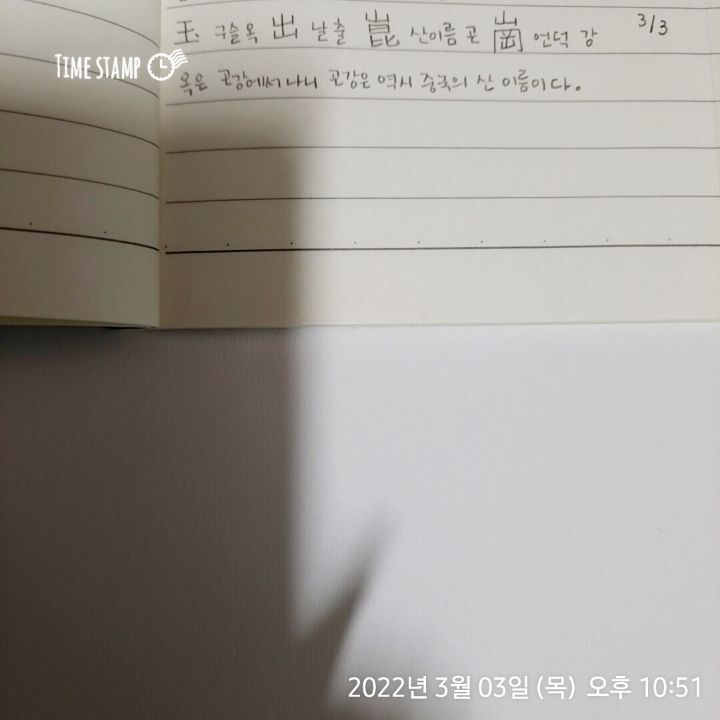 玉 구슬 옥 出 날 출 崑 산이름 곤 崗 언덕 강 3/3
TIME STAMP
옥은 곤강에서 나니 곤강은 역시 중국의 산 이름이다.
2022년 3월 03일 (목) 오후 10:51